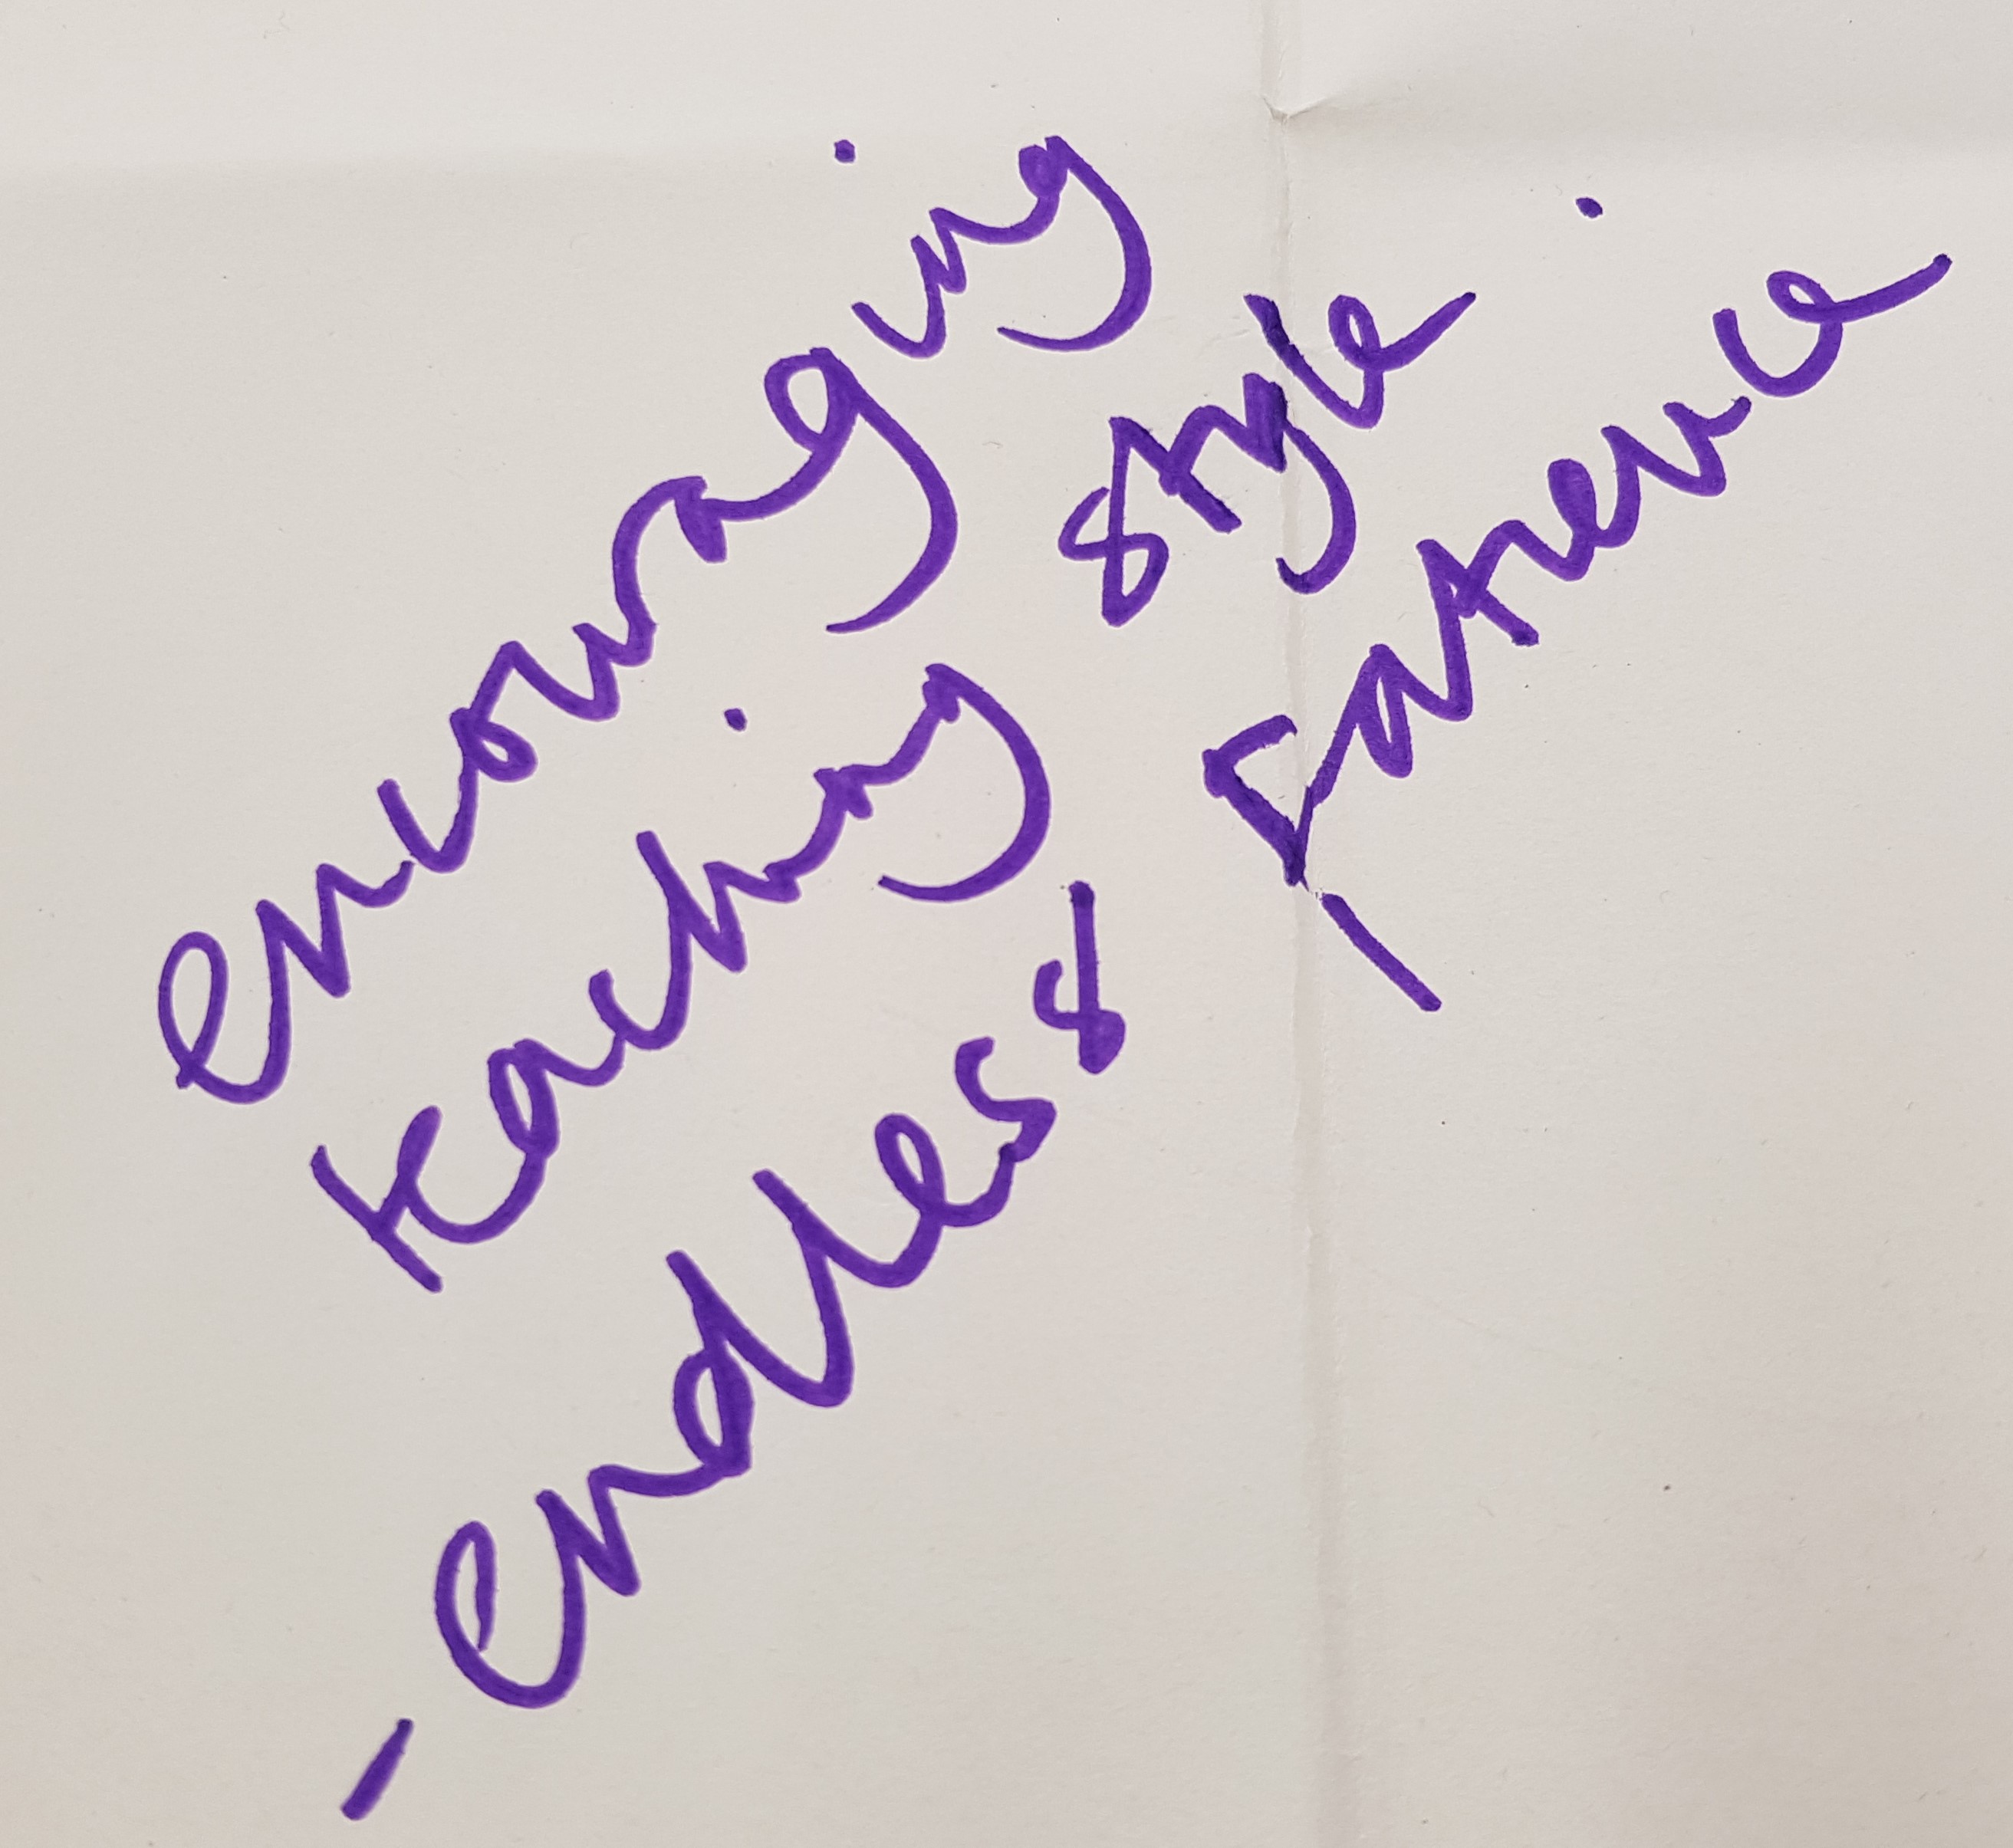 encouraging
teaching style
- endless patience